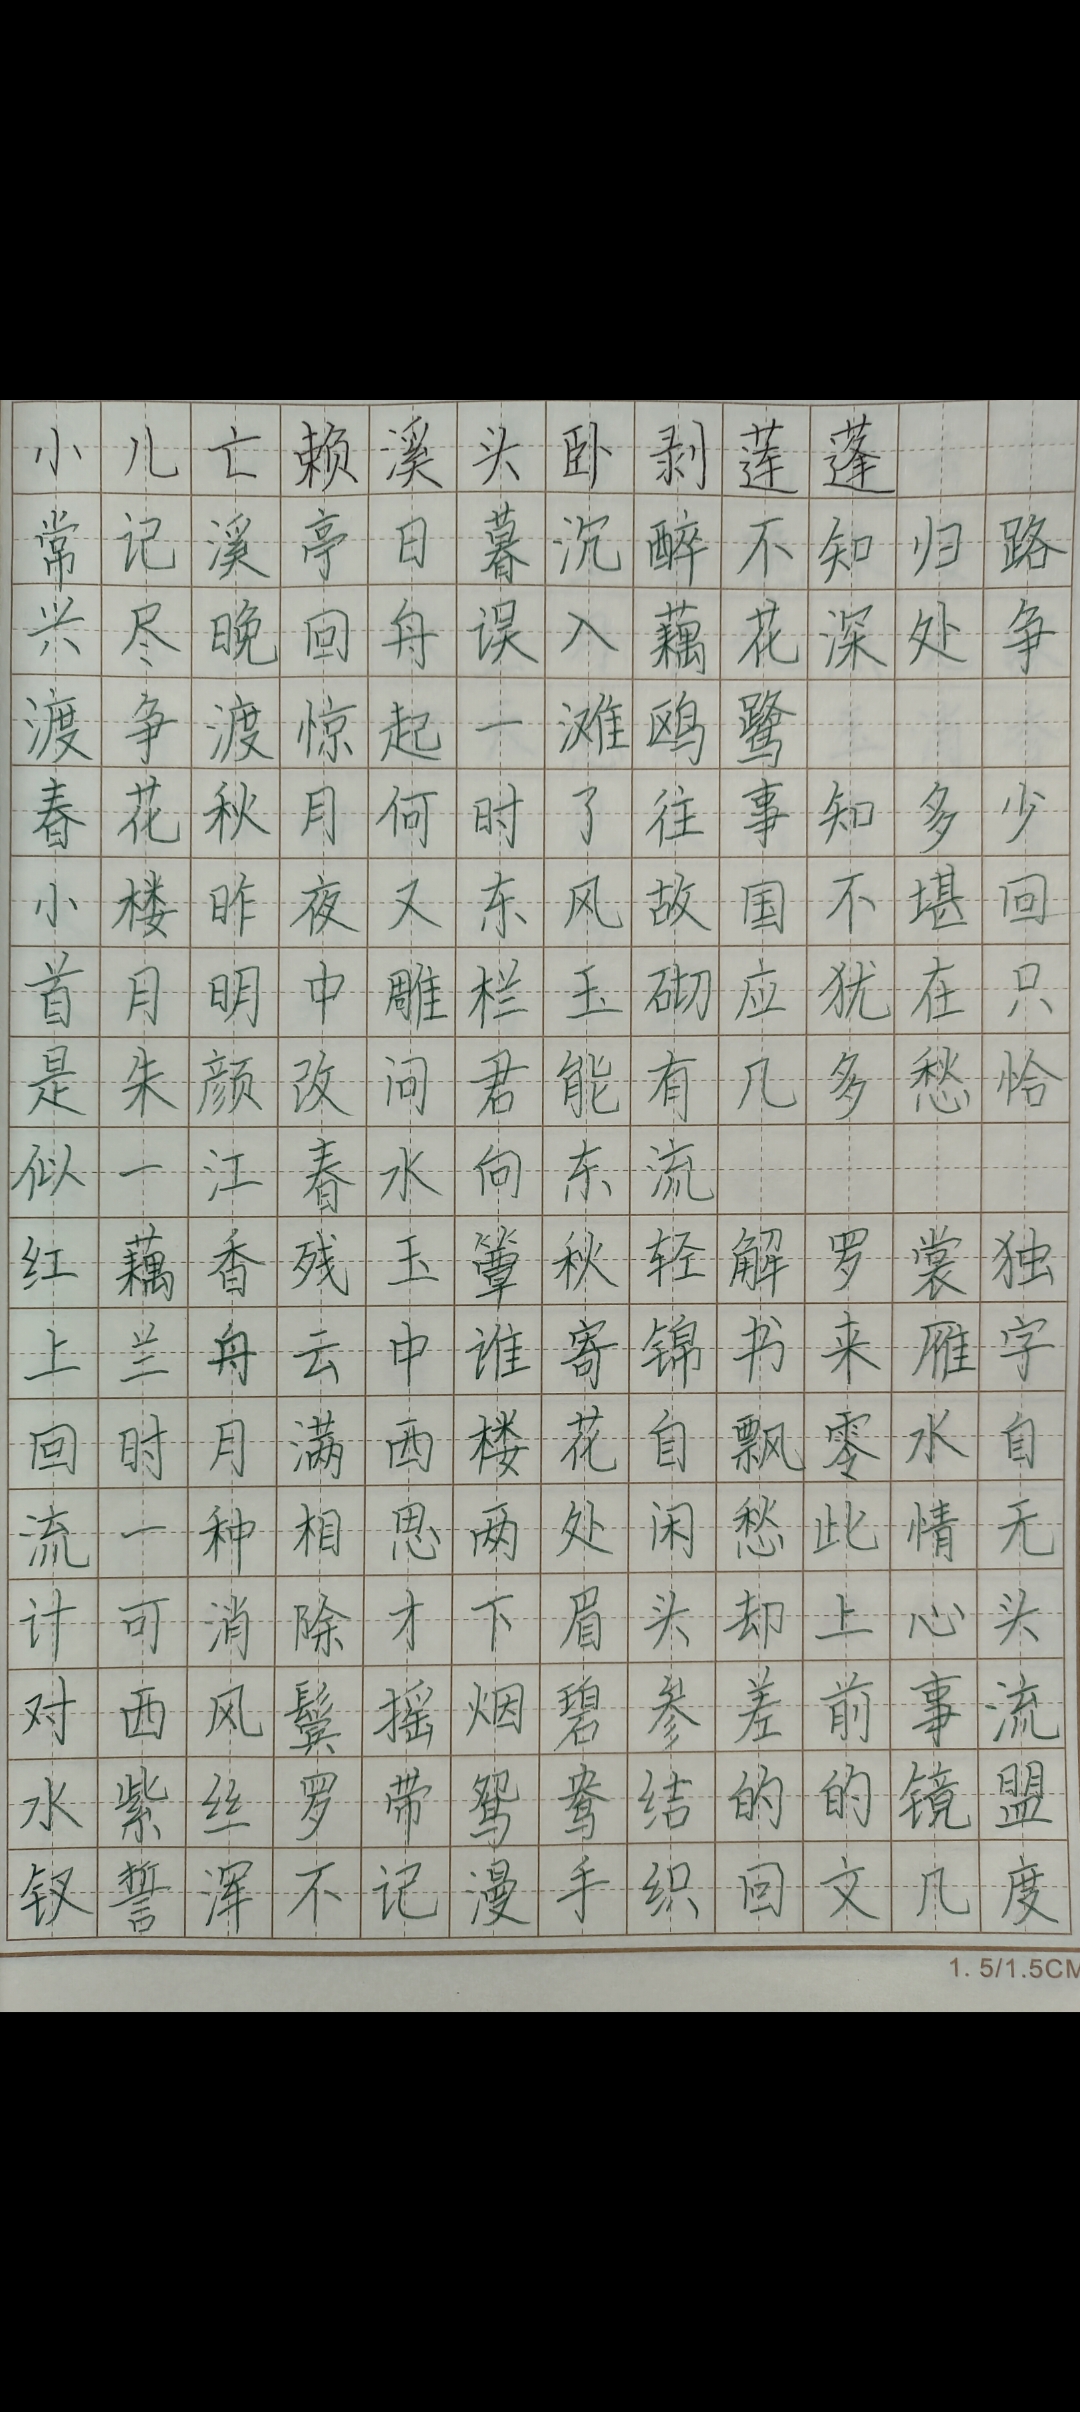 小儿亡赖溪头卧剥莲蓬
常记溪亭日暮沉醉不知归路
兴尽晚回舟误入藕花深处争
渡争渡惊起一滩鸥鹭
春花秋月何时了往事知多少
小楼昨夜又东风故国不堪回
首月明中雕栏玉砌应犹在只
是朱颜改问君能有几多愁恰
似一江春水向东流
红藕香残玉簟秋轻解罗裳独
上兰舟云中谁寄锦书来雁字
回时月满西楼花自飘零水自
流一种相思两处闲愁此情无
计可消除才下眉头却上心头
对西风鬓摇烟碧参差前事流
水紫丝罗带鸳鸯结的的镜盟
钗誓浑不记漫手织回文几度
1.5/1.5CM